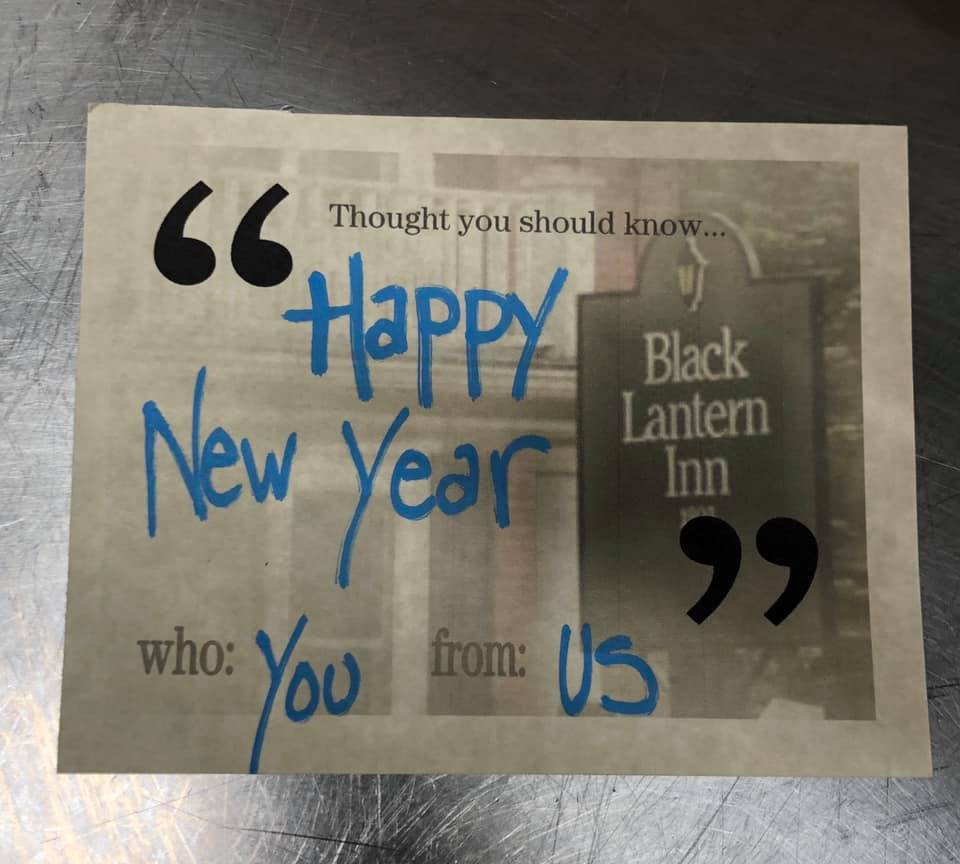 “ Thought you should know...
Happy
New Year
Black
Lantern
Inn
”
who: You from: US